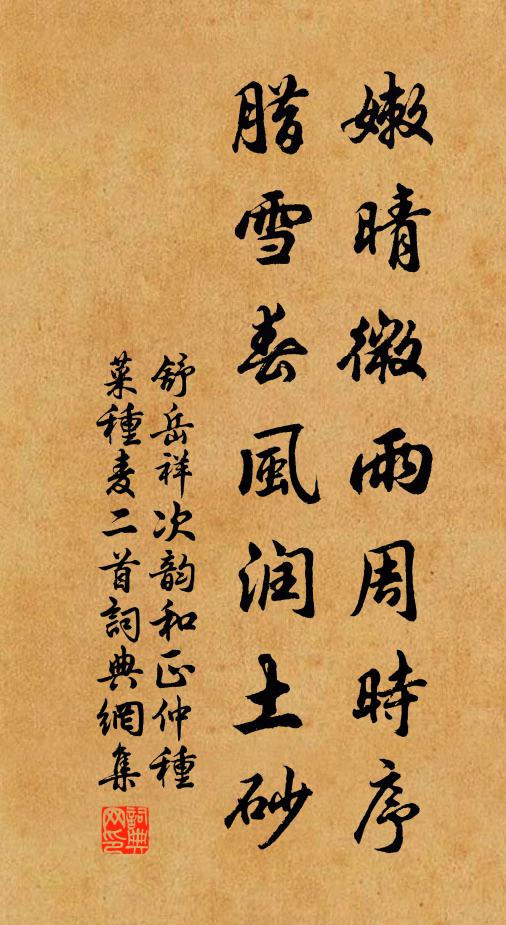 嫩晴微雨周時序
腊雪春風润土砂
舒岳祥次韵和正仲種
菜種麦二首詞典網集
詞典网印